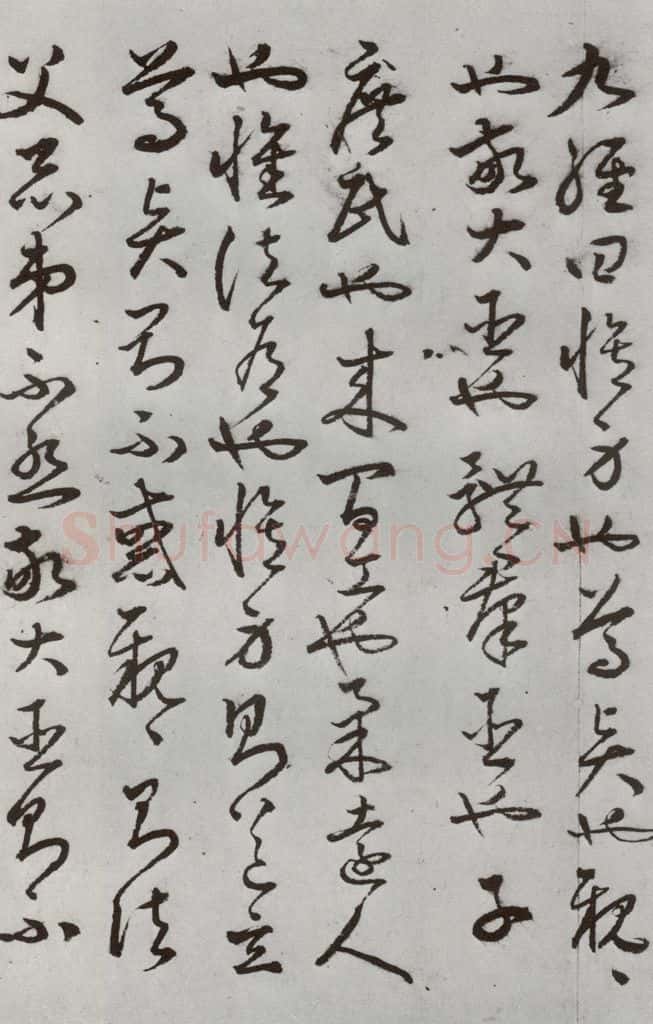 九經曰脩身也尊賢也親〻
也敬大臣也體群臣也子
庶民也来百工也柔遠人
也懷諸侯也脩身則道立
尊賢則不惑親〻則諸
父昆弟不怨敬大臣則不
Shufawang.CN